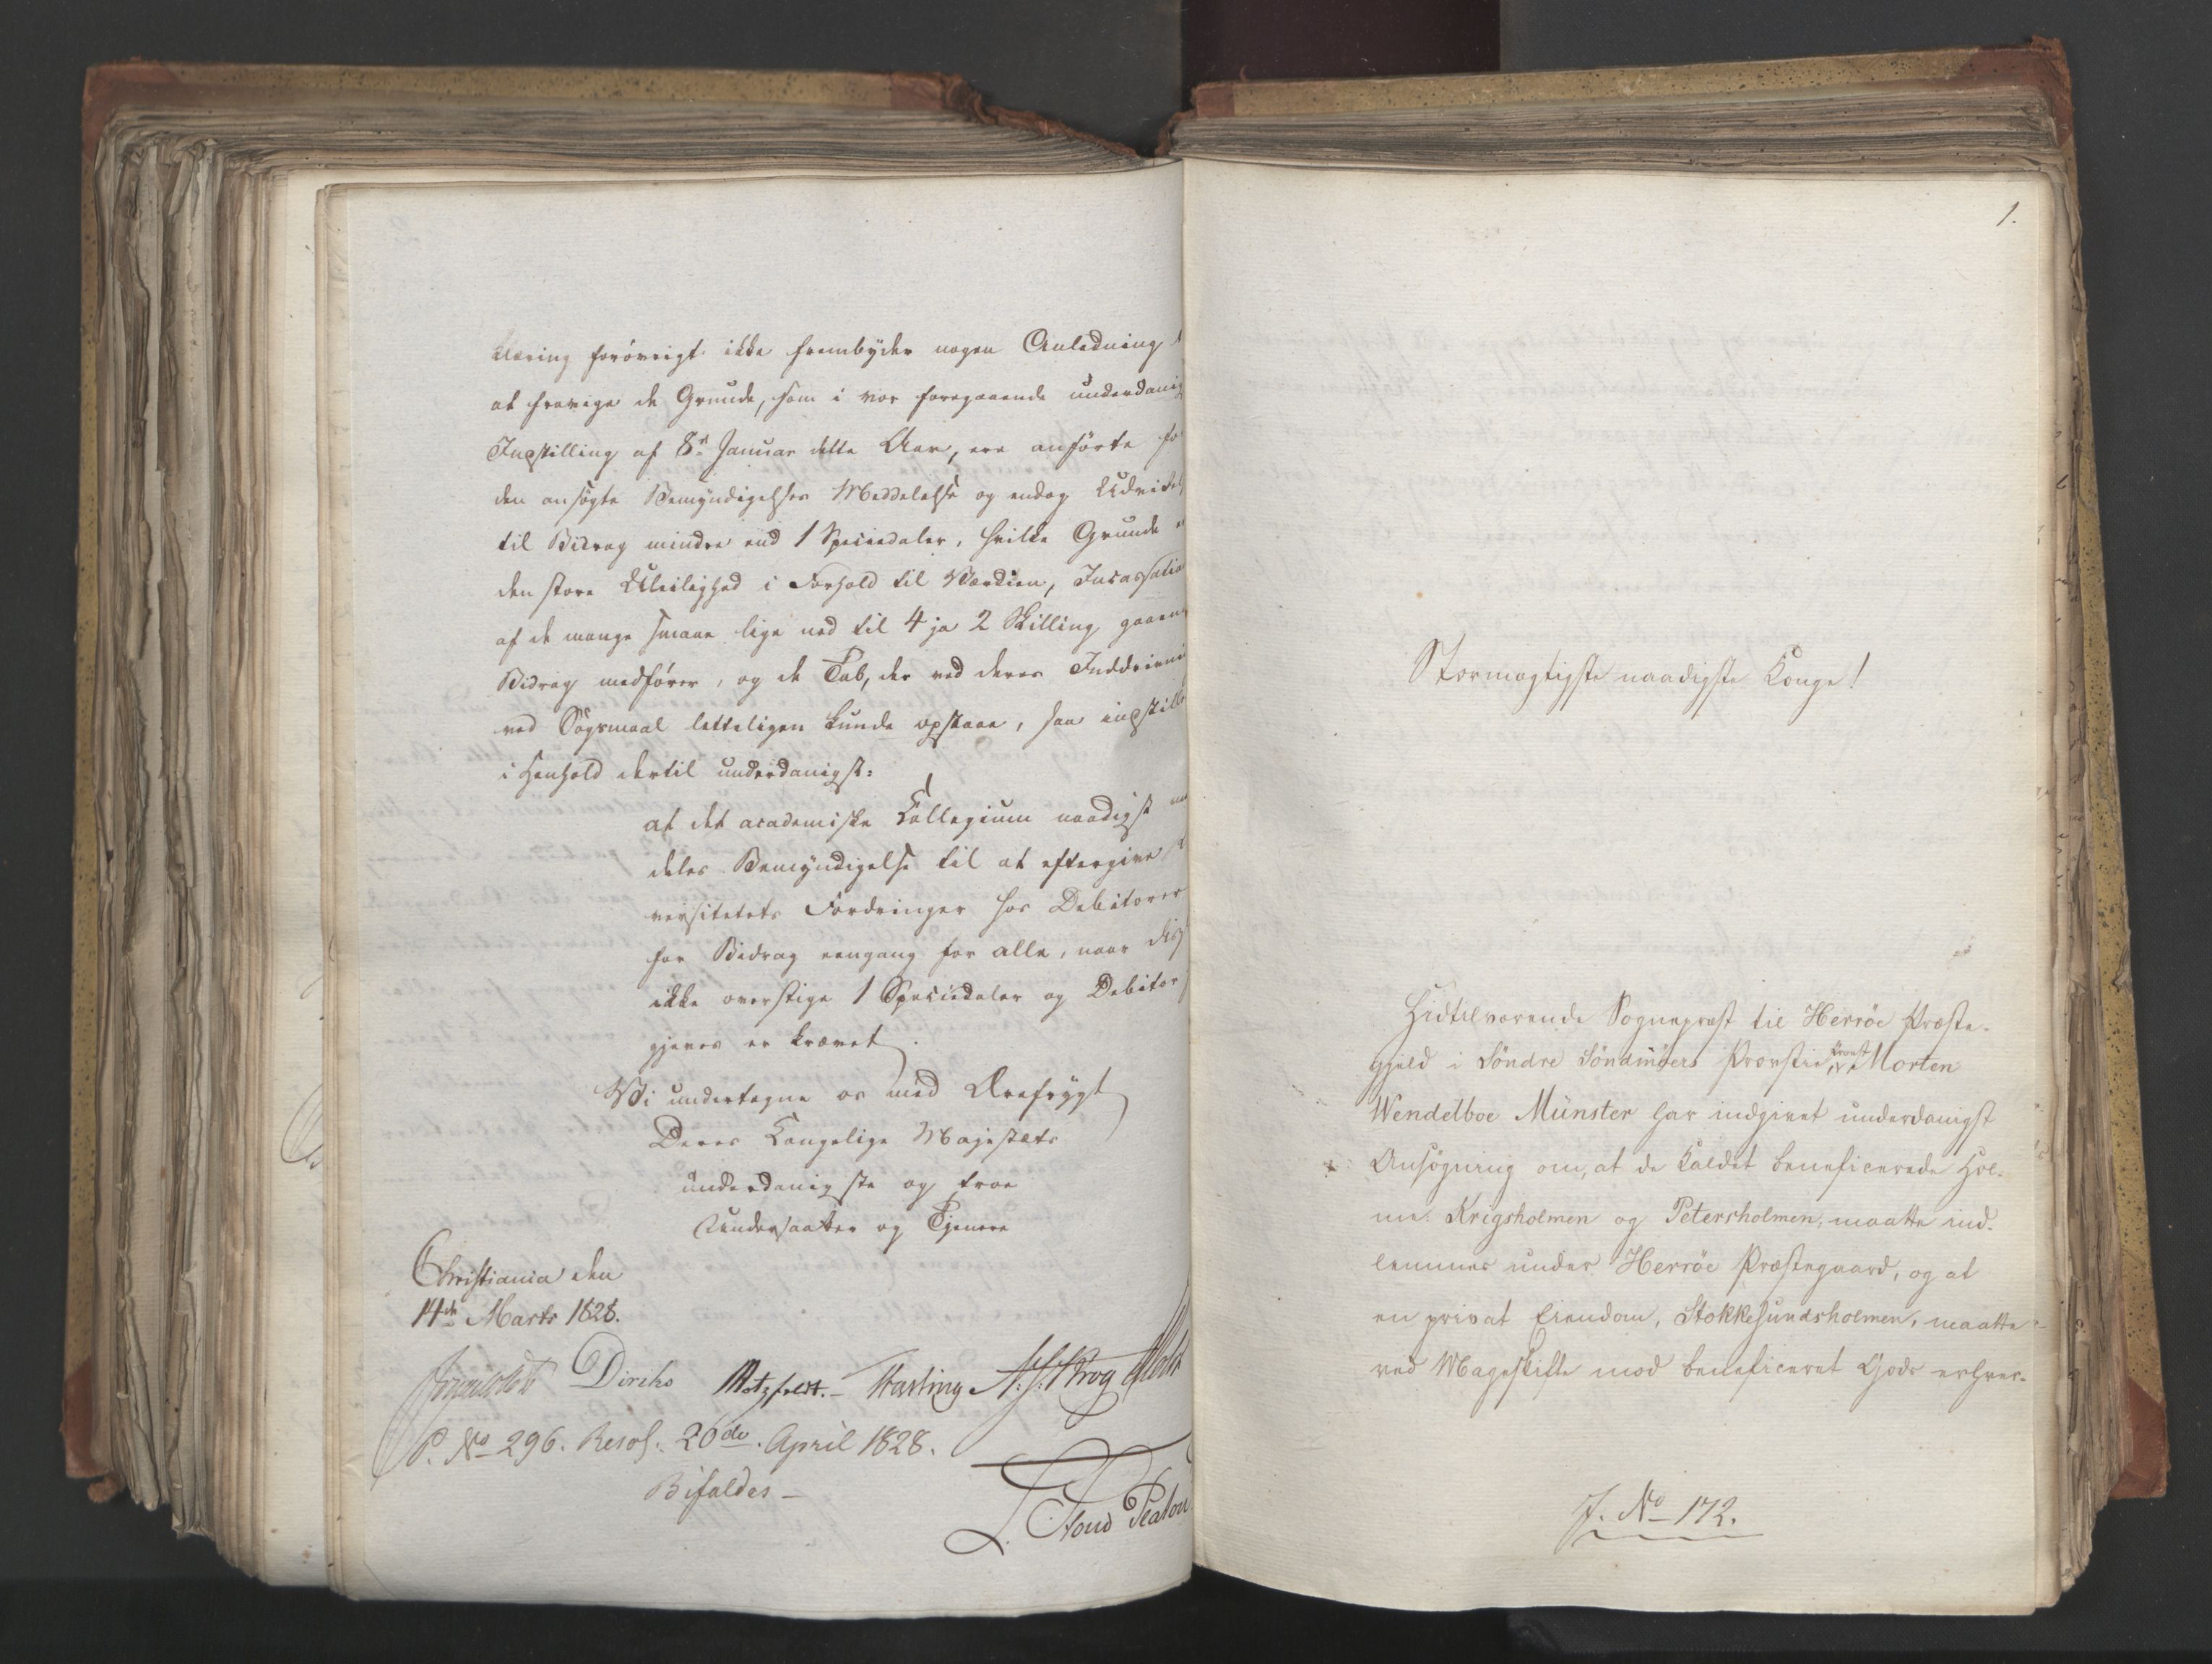 klæring forövrigt ikke frembyder nogen Anledning
at fravige de Grunde, som i vor foregaaende underdanig
Indstilling af 8de Januar dette Aar, ere anförte for
den ansögte Bemyndigelses Meddelelse og endog Udvidel
til Bidrag mindre end 1 Speciedaler, hvilke Grunde
den store Uleilighed i Forhold til Værdien, Incassatio
af de mange smaae lige ned til 4 ja 2 Skilling gaaen
Bidrag medfører, og de Tab, der ved deres Inddrivni
ved Sögsmaal letteligen kunde opstaae, saa indstille
i Henhold dertil underdanigst:
at det academiske Collegium naadigst med
deles Bemyndigelse til at eftergive
versitetets Fordringer hos Debitorer
for Bidrag eengang for alle, naar disse
ikke overstige 1 Speciedaler og Debitor
gjeves er krævet.
Vi undertegne os med Ærefrygt
Deres Kongelige Majestæts
underdanigste og troe
Undersaatter og Tjenere
Christiania den
14de Marts 1828.
Diriks Motzfeldt. Fasting A: S: Krog Holst
P. No 296. Resol. 20de April 1828.
Bifaldes –
1.
Stormægtigste naadigste Konge!
Hidtilværende Sognepræst til Herröe Præste-
gjeld i Söndre Söndmöers Provstie, Provst Morten
Wendelboe Münster har indgivet underdanigst
Ansögning om, at de Kaldet beneficerede Hol-
me: Krigsholmen og Petersholmen, maatte ind-
lemmes under Herröe Præstegaard, og at
en privat Eiendom, Stokkesundsholmen, maatte
ved Mageskifte mod beneficeret Gods erhver-
J. No 172.